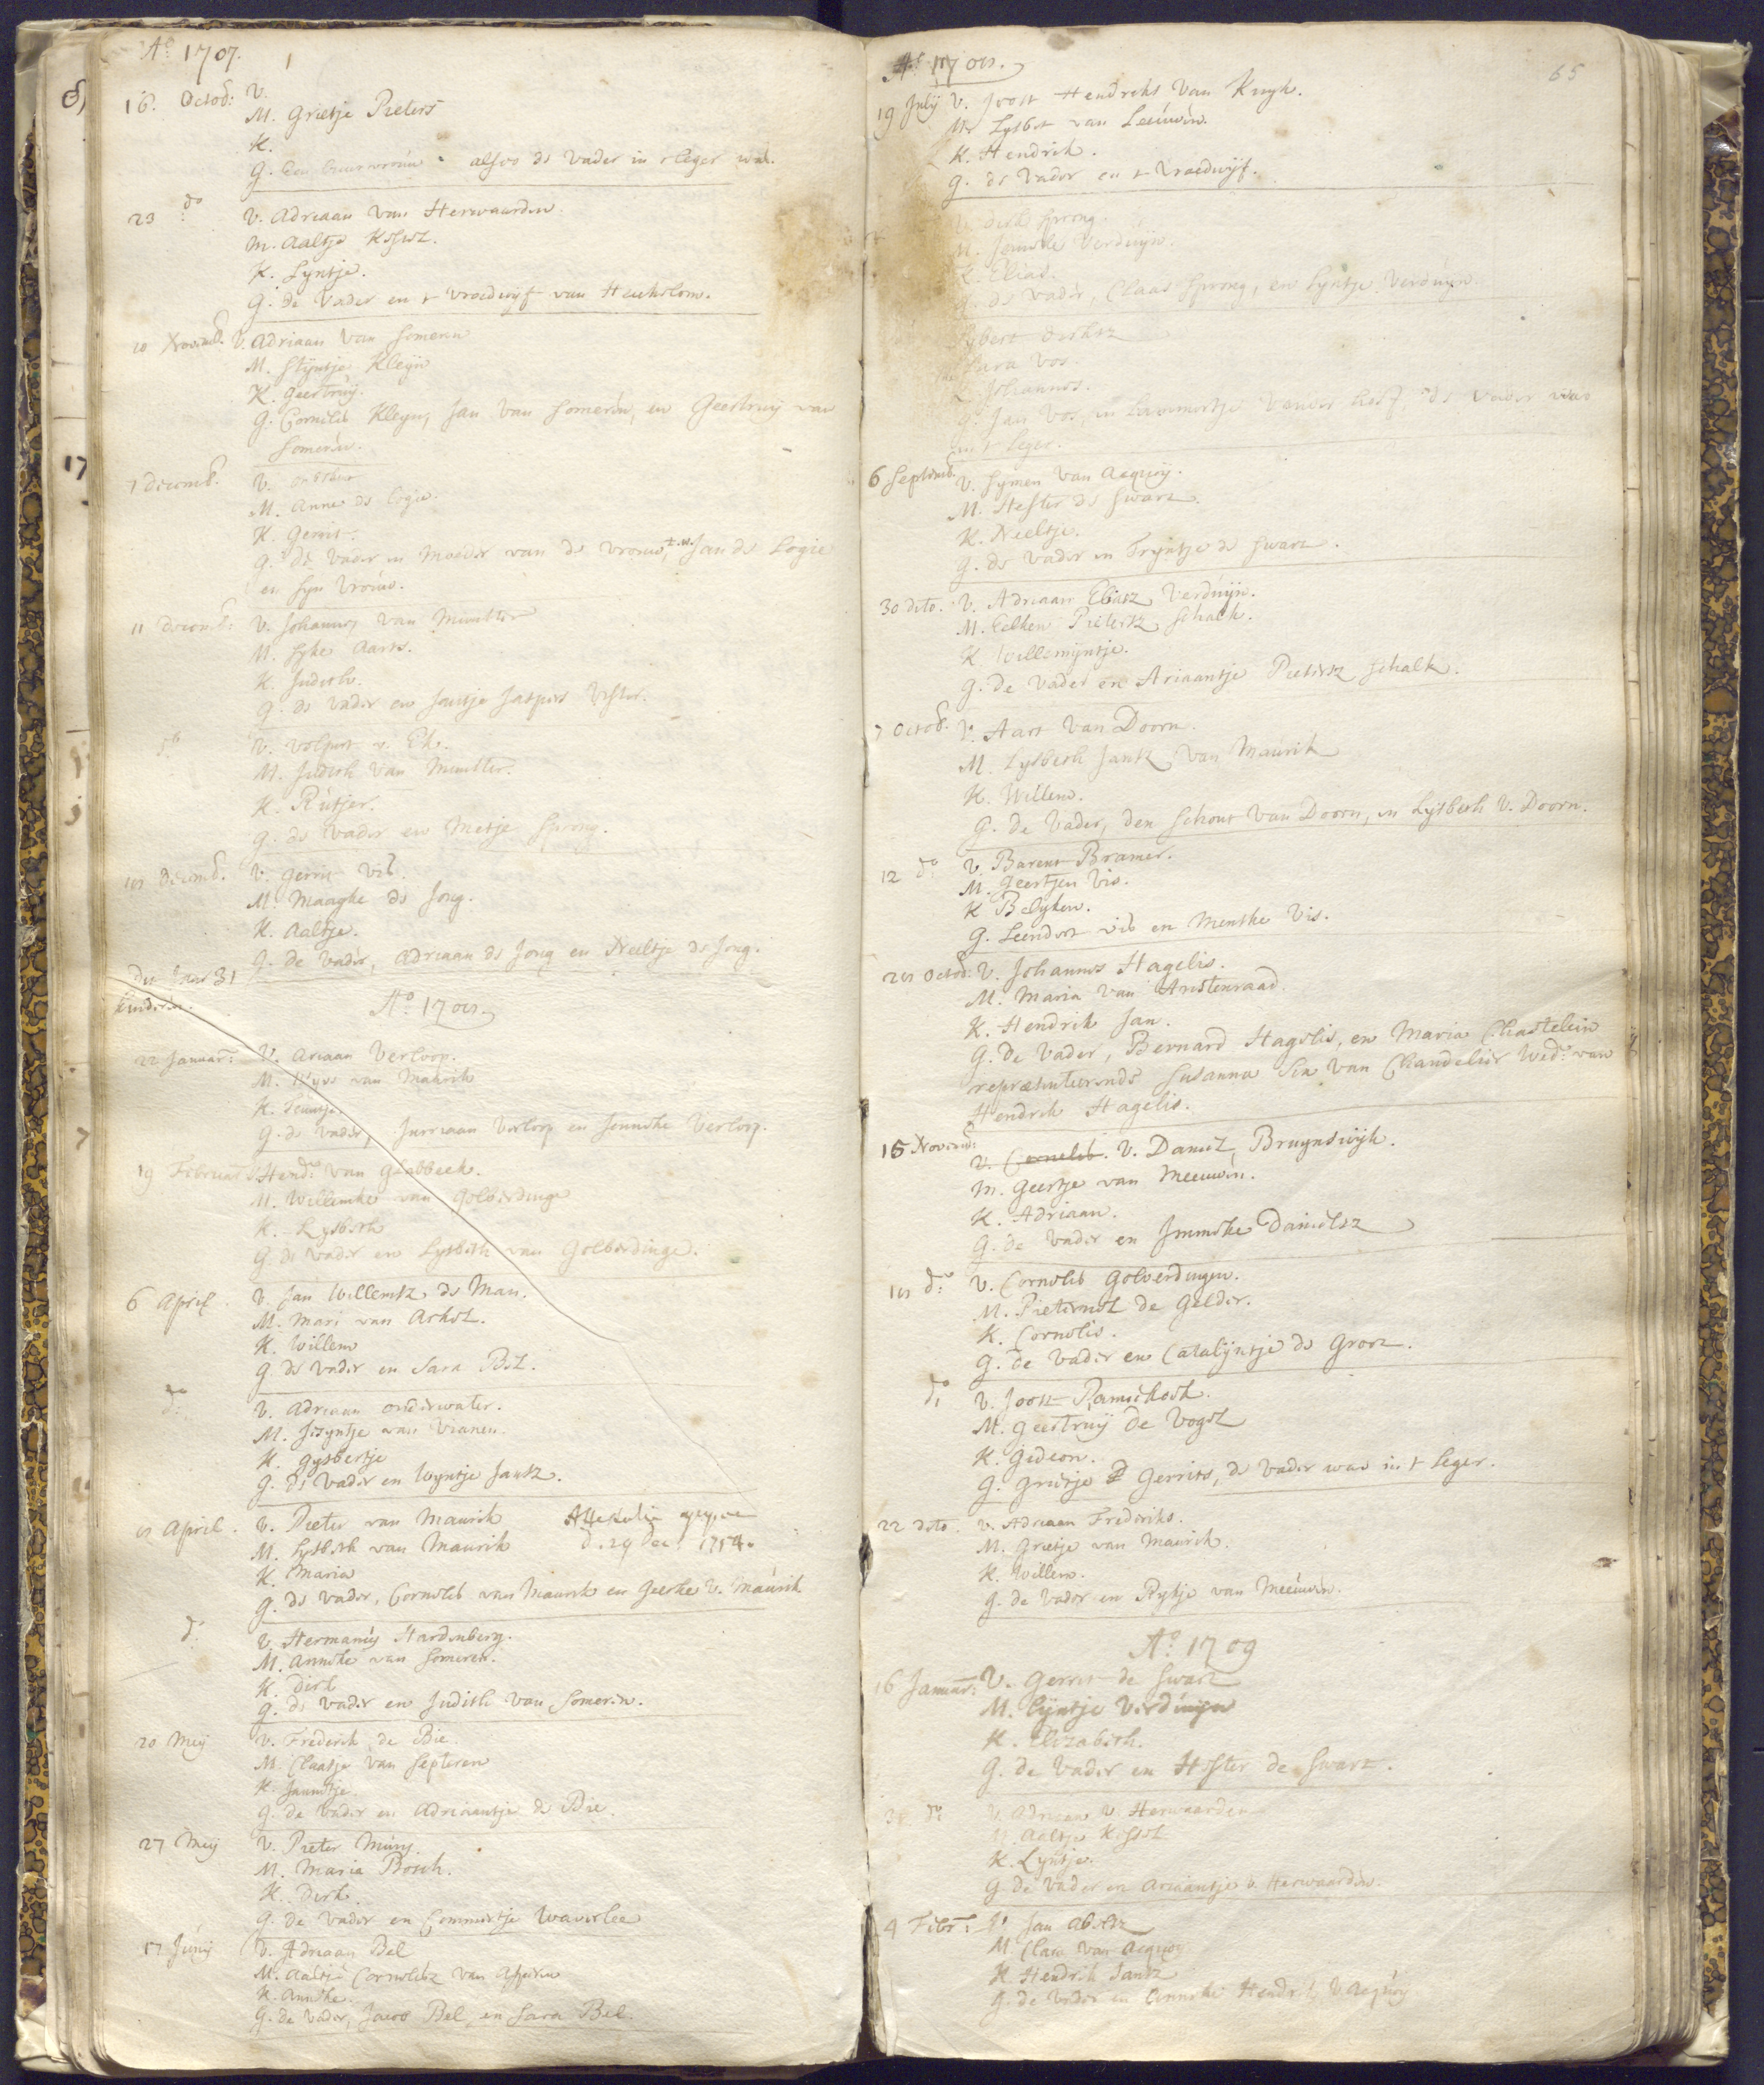 Aº 1707.
16. Octob: V.
M. Grietje Pieters
K.
G. Een buurvrouw alsoo de Vader in t leger was.
23 dº V. Adriaan van Herwaarden
M. Aaltje Kessel.
K. Lyntje.
G. de Vader en t vroedwyf van Heukelom.
10 Novemb. V. Adriaan van Someren
M. Styntje Kleyn
K. Geertruy.
G. Cornelis Kleyn, Jan van Someren, en Geertruy van
Someren.
7 Decemb. V.
M. Anna de Logie.
K. Gerrit.
G. de Vader en Moeder van de vrouw, t.w. Jan de Logie
en syn Vrouw.
11 Decemb: V. Johannes van Munster
M. Syke Aarts.
K. Judith.
G. de Vader en Jantje Jaspers
V. Volpert v. Ek.
M. Judith van Munster.
K. Rutjer.
G. de Vader en Metje Sprong.
18 Decemb. V. Gerrit Vis.
M. Maaghe de Jong.
K. Aaltje.
G. de Vader, Adriaan de Jong en Neeltje de Jong.
Dit Jaar 31
kinderen.
Aº 1708.
22 Januar: V. Ariaan Verloop.
M. van Maurik
K. Teuntje.
G. de Vader, Jurriaan Verloop en Jenneke Verloop.
19 Februar V. Hend: van Glabbeek.
M. Willemke van Golberdinge
K. Lysbeth
G. de Vader en Lysbeth van Golberdinge.
6 April. V. Jan Willemsz de Man.
M. Mari van Arkel.
K. Willem
G. de Vader en Sara Bel.
dº: V. Adriaan onderwater.
M. Styntje van Vianen.
K. Gysbertje
G. de Vader en Wyntje Jansz.
8 April. V. Pieter van Maurik Attestatie gegeven
M. Lysbeth van Maurik d. 29 Dec. 1754.
K. Maria
G. de Vader, Cornelis van Maurik en Geerke v. Maurik
dº: V. Hermanus Hardenberg.
M. Anneke van Someren.
K. Dirk
G. de Vader en Judith van Someren.
20 Mey V. Frederik de Bie.
M. Claatje van Septeren
K. Jannetje.
G. de Vader en Adriaantje de Bie.
27 Mey V. Pieter Muys.
M. Maria Bosch.
K. Derk.
G. de Vader en Commertje Waverlee
17 Juny V. Adriaan Bel
M. Aaltje Cornelisz van Asperen
K. Anneke.
G. de Vader, Jacob Bel, en Sara Bel.
Aº 1708. 65
19 July V. Joost Hendriks van Kuyk.
M. Lysbet van Leeuwen.
K. Hendrik.
G. de Vader en t Vroedwyf.
V. Dirk Sprong.
M. Jenneke Verduyn.
K. Elias.
G. de Vader, Claas Sprong, en Lyntje Verduyn
Sybert Dirksz
Sara Vos.
K. Johannes.
G. Jan Vos, en Lammertje vander Hest, de Vader was
in t leger.
6 Septemb. V. Symen van Acquoy.
M. Hester de Swart.
K. Neeltje.
G. de Vader en Tryntje de Swart.
30 dito. V. Adriaan Eliasz Verduyn.
M. Eelken Pietersz Schalk.
K Willemyntje.
G. de Vader en Ariaantje Pietersz Schalk.
7 Octob. V. Aart van Doorn.
M. Lysbeth Jansz van Maurik
K. Willem.
G. de Vader, den Schout van Doorn, en Lysbeth v. Doorn.
12 dº: V. Barent Bramer.
M. Geertjen Vis.
K Belyken.
G. Leendert Vis en Menske Vis.
28 Octob: V. Johannes Hagelis.
M. Maria van Anstenraad.
K. Hendrik Jan.
G. De Vader, Bernard Hagelis, en Maria Chastelein
repræsenteerende Susanna Sen van Chandelier Wed: van
Hendrik Hagelis.
15 Novemb: V. Cornelis. V. Daniel Bruynswyk.
M. Geertje van Meeuwen.
K. Adriaan.
G. de Vader en Jenneke Danielsz
18 dº: V. Cornelis Golverdingen.
M. Pieternel de Gelder.
K. Cornelis.
G. de Vader en Catalyntje de Groot.
dº: V. Joost Ramekoek.
M. Geertruy de Vogel
K. Gideon.
G. Grietje Gerrits, de Vader was in t leger.
22 dito. V. Adriaan Frederiks.
M. Grietje van Maurik.
K. Willem.
G. de Vader en Rykje van Meeuwen.
Aº 1709
16 Januar: V. Gerrit de Swart
M. Lyntje Verduijn
K. Elizabeth.
G. de Vader en Hester de Swart.
dº: V. Adriaan v. Herwaarden
M. Aaltje Kessel
K. Lyntje.
G. de Vader en Ariaantje v. Herwaarden.
4 Febr: V. Jan Abelsz
M. Clara van Acquoy
K. Hendrik Jansz
G. de Vader en Anneke Hendriks v. Acquoy